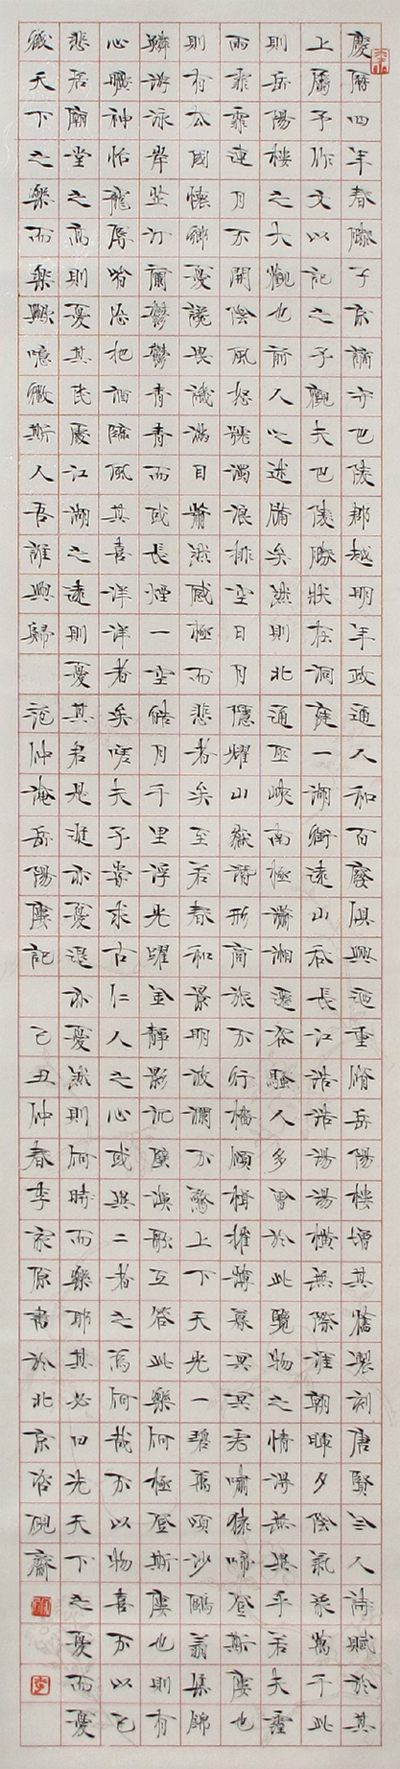 慶曆四年春滕子京謫守巴陵郡越明年政通人和百廢俱興迺重脩岳陽樓增其舊製刻唐賢今人詩賦於其
上屬予作文以記之予觀夫巴陵勝狀在洞庭一湖銜遠山吞長江浩浩湯湯橫無際涯朝暉夕陰氣象萬千此
則岳陽樓之大觀也前人之述備矣然則北通巫峽南極瀟湘遷客騷人多會於此覽物之情得無異乎若夫霪
雨霏霏連月不開陰風怒號濁浪排空日月隱耀山嶽潛形商旅不行檣傾楫摧薄暮冥冥虎嘯猿啼登斯樓也
則有去國懷鄉憂讒畏譏滿目蕭然感極而悲者矣至若春和景明波瀾不驚上下天光一碧萬頃沙鷗翔集錦
鱗游泳岸芷汀蘭鬱鬱青青而或長煙一空皓月千里浮光躍金靜影沉璧漁歌互答此樂何極登斯樓也則有
心曠神怡寵辱皆忘把酒臨風其喜洋洋者矣嗟夫予嘗求古仁人之心或異二者之為何哉不以物喜不以己
悲居廟堂之高則憂其民處江湖之遠則憂其君是進亦憂退亦憂然則何時而樂耶其必曰先天下之憂而憂
後天下之樂而樂歟噫微斯人吾誰與歸 范仲淹岳陽樓記 己丑仲春李家原書於北京硯齋